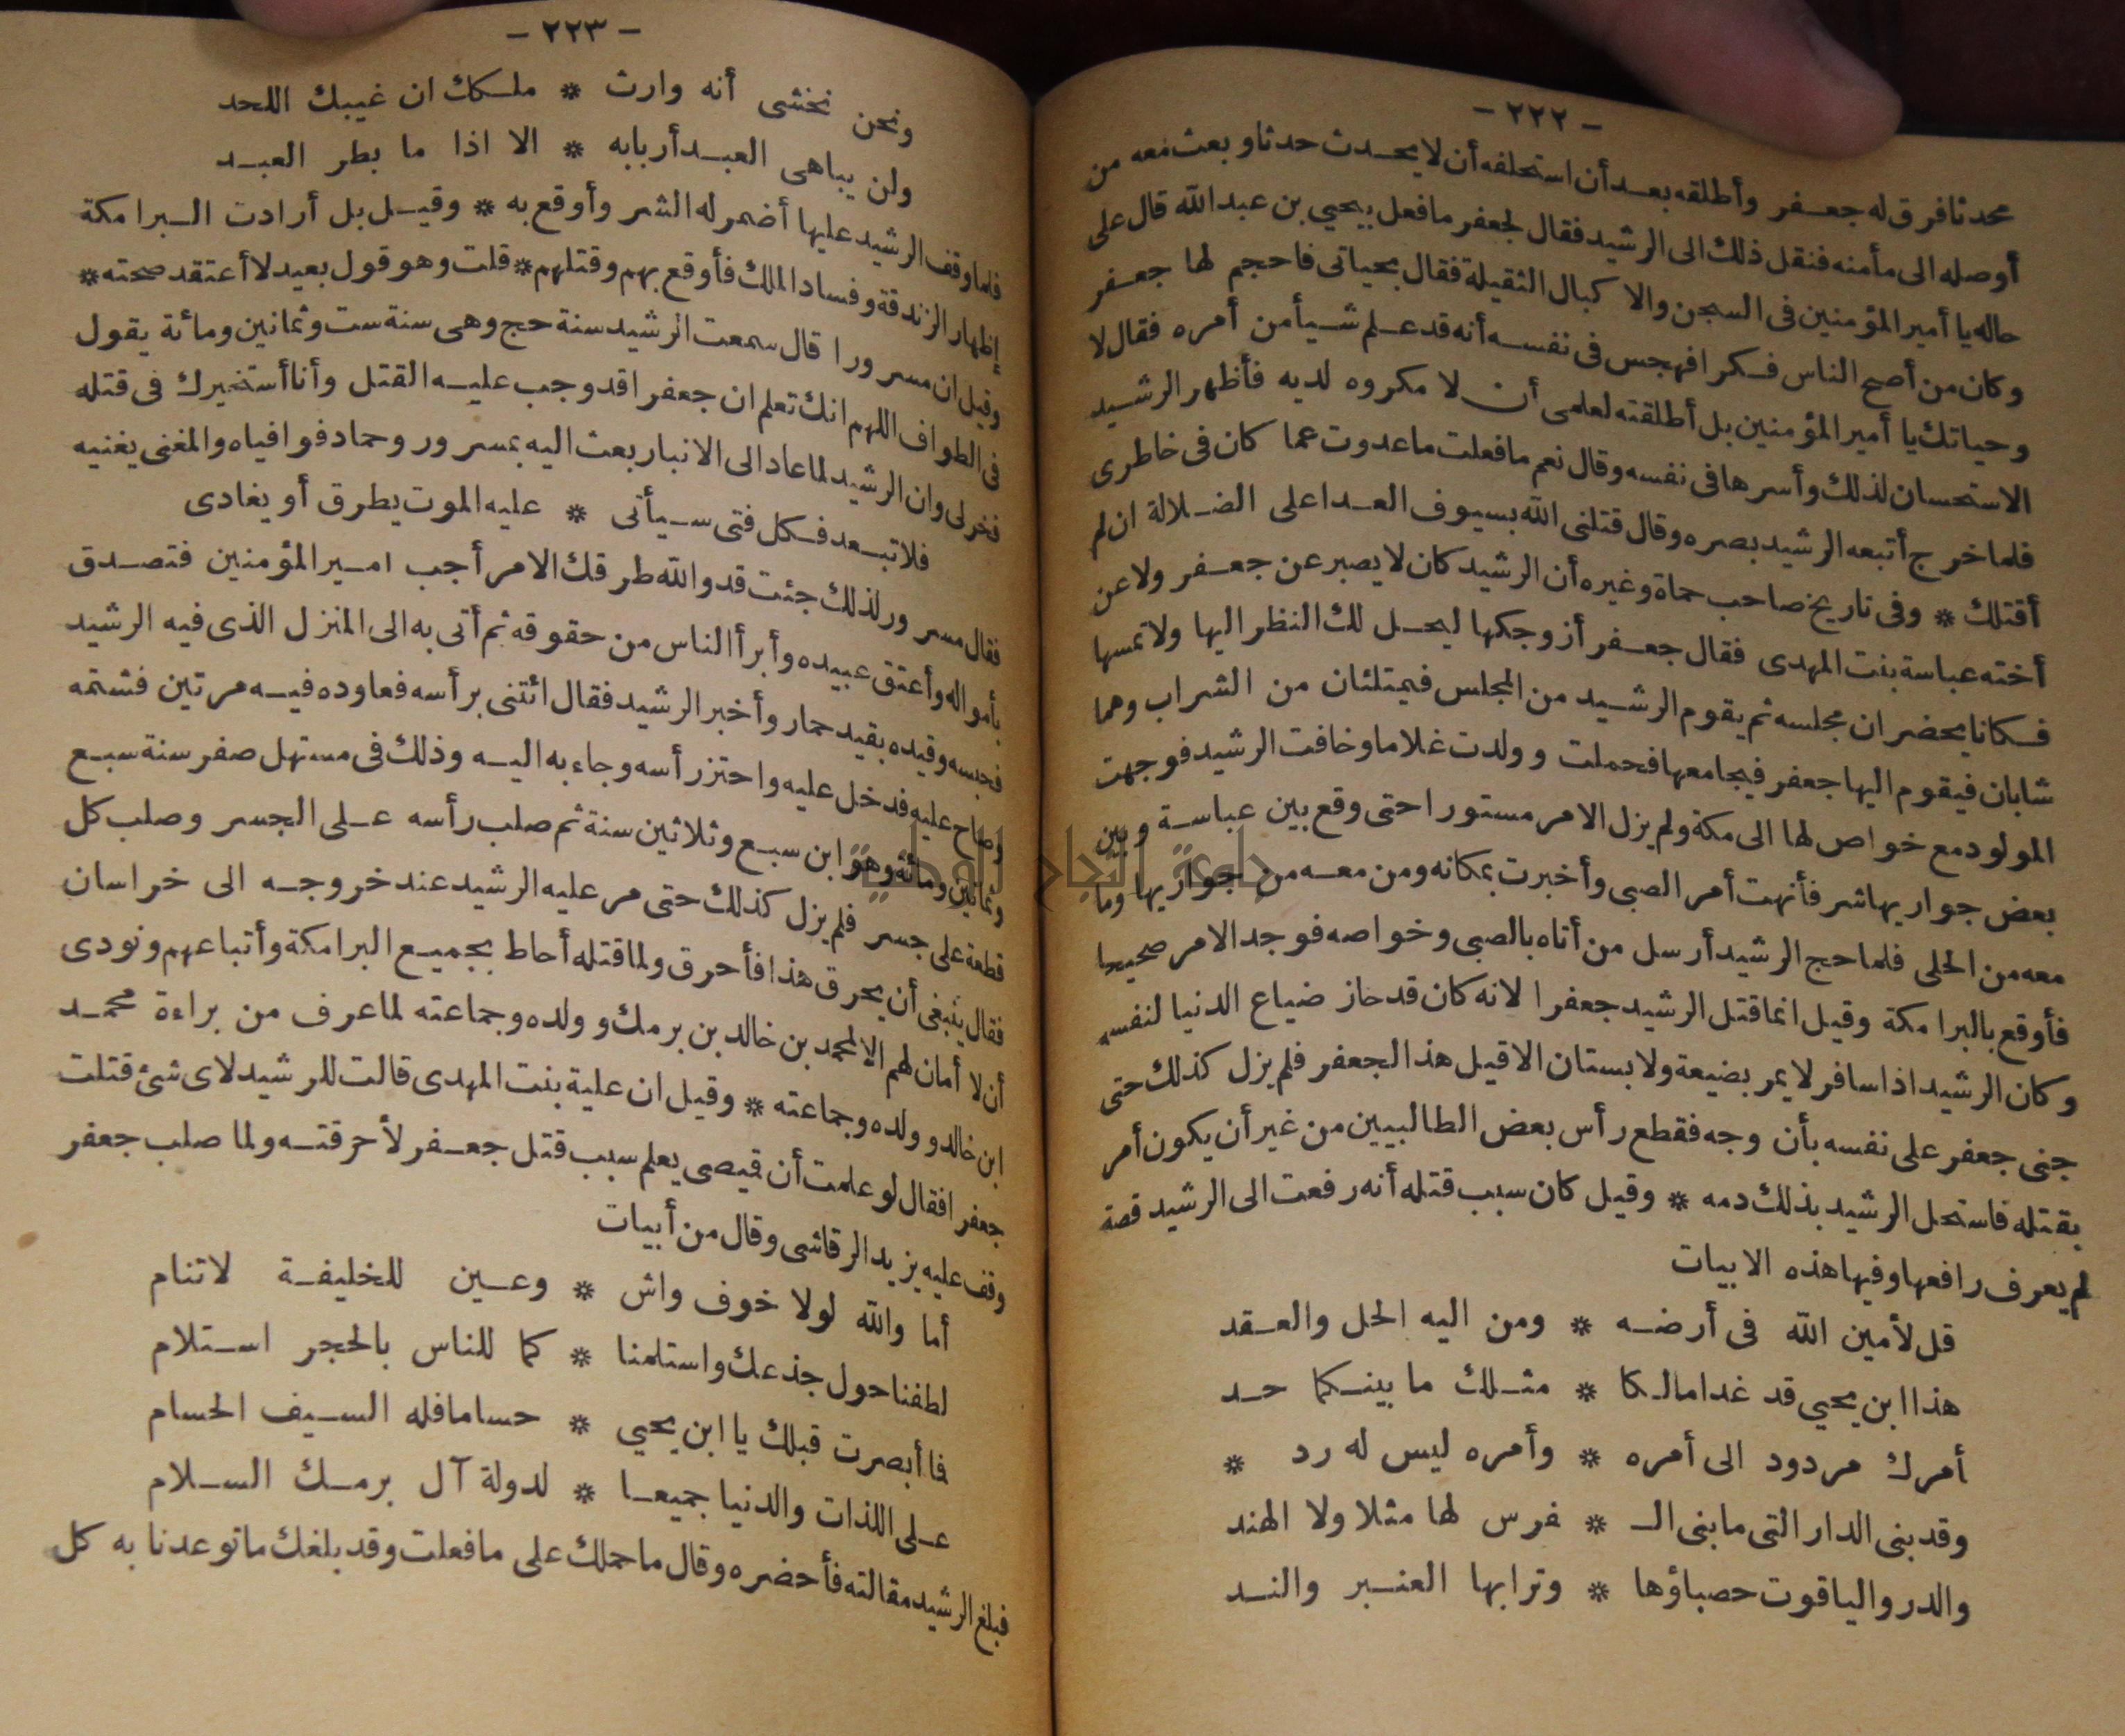 - ٢٢٢ -
محدثا فرق له جعفر وأطلقه بعد أن استحلفه أن لا يحدث حدثا وبعث معه من
أوصله الى مأمنه فنقل ذلك الى الرشيد فقال لجعفر ما فعل يحيي بن عبد الله قال على
حاله يا أمير المؤمنين فى السجن والا كبال الثقيلة فقال بحياتى فاحجم لها جعفر
وكان من أصح الناس فكرا فهجس فى نفسه أنه قد علم شيأ من أمره فقال لا
وحياتك يا أمير المؤمنين بل أطلقته لعلمى أن لا مكروه لديه فأظهر الرشيد
الاستحسان لذلك وأسرها فى نفسه وقال نعم ما فعلت ما عدوت عما كان فى خاطرى
فلما خرج أتبعه الرشيد بصره وقال قتلنى الله بسيوف العدا على الضلالة ان لم
أقتلك * وفى تاريخ صاحب حماة وغيره أن الرشيد كان لا يصبر عن جعفر ولا عن
أخته عباسة بنت المهدى فقال جعفر أزوجكها ليحل لك النظر اليها ولا تمسها
فكانا يحضران مجلسه ثم يقوم الرشيد من المجلس فيمتلئان من الشراب وهما
شابان فيقوم اليها جعفر فيجامعها فحملت وولدت غلاما وخافت الرشيد فوجهت
المولود مع خواص لها الى مكة ولم يزل الامر مستورا حتى وقع بين عباسة وبين
بعض جواريها شر فأنهت أمر الصبى وأخبرت بمكانه ومن معه من جواريها وما
معه من الحلى فلما حج الرشيد أرسل من أتاه بالصبى وخواصه فوجد الامر صحيحا
فأوقع بالبرامكة وقيل انما قتل الرشيد جعفرا لانه كان قد حاز ضياع الدنيا لنفسه
وكان الرشيد اذا سافر لا يمر بضيعة ولا بستان الا قيل هذا لجعفر فلم يزل كذلك حتى
جنى جعفر على نفسه بأن وجه فقطع رأس بعض الطالبيين من غير أن يكون أمر
بقتله فاستحل الرشيد بذلك دمه * وقيل كان سبب قتله أنه رفعت الى الرشيد قصة
لم يعرف رافعها وفيها هذه الابيات
قل لأمين الله فى أرضه * ومن اليه الحل والعقد
هذا ابن يحيي قد غدا مالكا * مثلك ما بينكما حد
أمرك مردود الى أمره * وأمره ليس له رد *
وقد بنى الدار التى ما بنى الـ * فرس لها مثلا ولا الهند
والدر والياقوت حصباؤها * وترابها العنبر والند
- ٢٢٣ -
ونحن نخشى أنه وارث * ملكك ان غيبك اللحد
ولن يباهى العبد أربابه * الا اذا ما بطر العبد
فلما وقف الرشيد عليها أضمر له الشر وأوقع به * وقيل بل أرادت البرامكة
إظهار الزندقة وفساد الملك فأوقع بهم وقتلهم * قلت وهو قول بعيد لا أعتقد صحته *
وقيل ان مسرورا قال سمعت الرشيد سنة حج وهى سنة ست وثمانين ومائة يقول
فى الطواف اللهم انك تعلم ان جعفرا قد وجب عليه القتل وأنا أستخيرك فى قتله
فخر لى وان الرشيد لما عاد الى الانبار بعث اليه بمسرور وحماد فوافياه والمغنى يغنيه
فلا تبعد فكل فتى سيأتى * عليه الموت يطرق أو يغادى
فقال مسرور لذلك جئت قد والله طرقك الامر أجب امير المؤمنين فتصدق
بأمواله وأعتق عبيده وأبرأ الناس من حقوقه ثم أتى به الى المنزل الذى فيه الرشيد
فحبسه وقيده بقيد حمار وأخبر الرشيد فقال ائتنى برأسه فعاوده فيه مرتين فشتمه
وصاح عليه فدخل عليه واحتز رأسه وجاء به اليه وذلك فى مستهل صفر سنة سبع
وثمانين ومائة وهو ابن سبع وثلاثين سنة ثم صلب رأسه على الجسر وصلب كل
قطعة على جسر فلم يزل كذلك حتى مر عليه الرشيد عند خروجه الى خراسان
فقال ينبغى أن يحرق هذا فأحرق ولما قتله أحاط بجميع البرامكة وأتباعهم ونودى
أن لا أمان لهم الا لمحمد بن خالد بن برمك وولده وجماعته لما عرف من براءة محمد
ابن خالد وولده وجماعته * وقيل ان علية بنت المهدى قالت للرشيد لاى شئ قتلت
جعفرا فقال لو علمت أن قيصى يعلم سبب قتل جعفر لأحرقته ولما صلب جعفر
وقف عليه يزيد الرقاشى وقال من أبيات
أما والله لولا خوف واش * وعين للخليفة لا تنام
لطفنا حول جذعك واستلمنا * كما للناس بالحجر استلام
فما أبصرت قبلك يا ابن يحيي * حساما فله السيف الحسام
على اللذات والدنيا جميعا * لدولة آل برمك السلام
فبلغ الرشيد مقالته فأحضره وقال ما حملك على ما فعلت وقد بلغك ما توعدنا به كل
جامعة النجاح الوطنية